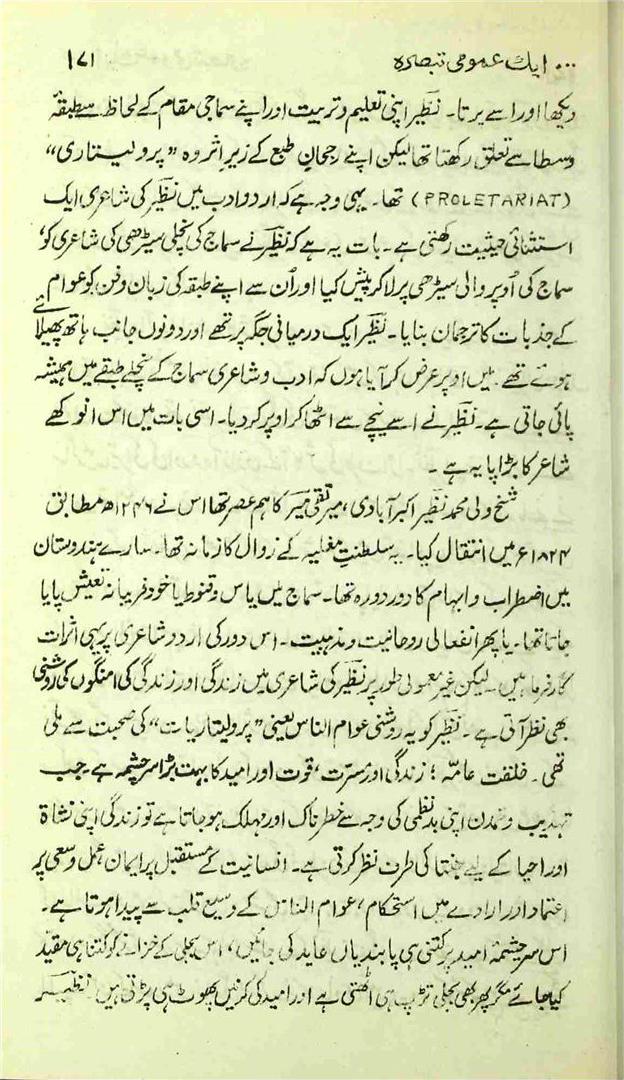 ... ایک عمومی تبصرہ ۱۷۱
دیکھا اور اسے برتا۔ نظیر اپنی تعلیم و تربیت اور اپنے سماجی مقام کے لحاظ سے طبقۂ
وسطا سے تعلق رکھتا تھا لیکن اپنے رجحانِ طبع کے زیرِ اثر وہ ”پرولیتاری“
(PROLETARIAT) تھا۔ یہی وجہ ہے کہ اردو ادب میں نظیر کی شاعری ایک
استثنائی حیثیت رکھتی ہے۔ بات یہ ہے کہ نظیر نے سماج کی نچلی سیڑھی کی شاعری کو،
سماج کی اُوپر والی سیڑھی پر لا کر پیش کیا اور اُن سے اپنے طبقہ کی زبان و فن کو عوام
کے جذبات کا ترجمان بنایا۔ نظیر ایک درمیانی جگہ پر تھے اور دونوں جانب ہاتھ پھیلائے
ہوئے تھے۔ میں اوپر عرض کر آیا ہوں کہ ادب و شاعری سماج کے نچلے طبقے میں ہمیشہ
پائی جاتی ہے۔ نظیر نے اسے نیچے سے اٹھا کر اوپر کر دیا۔ اسی بات میں اس انوکھے
شاعر کا بڑا پایہ ہے۔
شیخ ولی محمد نظیر اکبرآبادی، میر تقی میر کا ہم عصر تھا اس نے ۱۲۴۶ھ مطابق
۱۸۲۴ء میں انتقال کیا۔ یہ سلطنتِ مغلیہ کے زوال کا زمانہ تھا۔ سارے ہندوستان
میں اضطراب و ابہام کا دور دورہ تھا۔ سماج میں یاس و قنوط یا خود فریبانہ تعیش پایا
جاتا تھا۔ یا پھر انفعالی روحانیت و مذہبیت۔ اس دور کی اردو شاعری پر یہی اثرات
کارفرما ہیں۔ لیکن غیر معمولی طور پر نظیر کی شاعری میں زندگی اور زندگی کی امنگوں کی روشنی
بھی نظر آتی ہے۔ نظیر کو یہ روشنی عوام الناس یعنی ”پرولیتاریات“ کی صحبت سے ملی
تھی۔ خلقت عامّہ؛ زندگی اور مسرّت، قوت اور امید کا بہت بڑا سرچشمہ ہے۔ جب
تہذیب و تمدن اپنی بدنظمی کی وجہ سے خطرناک اور مہلک ہو جاتا ہے تو زندگی اپنی نشاۃ
اور احیا کے لیے جنتا کی طرف نظر کرتی ہے۔ انسانیت کے مستقبل پر ایمان، عمل و سعی پر
اعتماد اور ارادے میں استحکام، عوام الناس کے وسیع قلب سے پیدا ہوتا ہے۔
اس سرچشمۂ امید پر کتنی ہی پابندیاں عاید کی جائیں، اس بجلی کے خزانے کو کتنا ہی مقید
کیا جائے مگر پھر بھی بجلی تڑپ ہی اٹھتی ہے اور امید کی کرنیں پھوٹ ہی پڑتی ہیں۔ نظیر